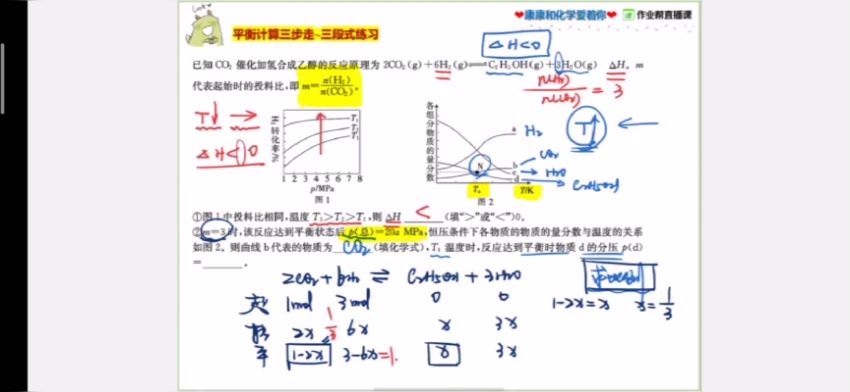 Luck
❤康康和化学爱着你❤ 作业帮直播课
平衡计算三步走~三段式练习
△H<0
已知 CO₂ 催化加氢合成乙醇的反应原理为 2CO₂(g)+6H₂(g)⇌C₂H₅OH(g)+3H₂O(g) △H。m
代表起始时的投料比,即 m=n(H₂)/n(CO₂)。
= 3
T↓ →
△H<0
H₂转化率/%
T₁
T₂
T₃
1 2 3 4 5 6 7 8
p/MPa
图 1
各组分物质的量分数
a H₂
b CO₂
c H₂O
d C₂H₅OH
N
T₄ T/K
图 2
T↑ ←
①图 1 中投料比相同,温度 T₃>T₂>T₁,则 △H < (填“>”或“<”)0。
②m=3 时,该反应达到平衡状态后 p(总)=20a MPa,恒压条件下各物质的物质的量分数与温度的关系
如图 2。则曲线 b 代表的物质为 CO₂ (填化学式),T₄ 温度时,反应达到平衡时物质 d 的分压 p(d)
=______。
2CO₂ + 6H₂ ⇌ C₂H₅OH + 3H₂O
起 1mol 3mol 0 0
1-2x=x x=1/3
转 2x 6x x 3x
平 1-2x 3-6x=1. x 3x